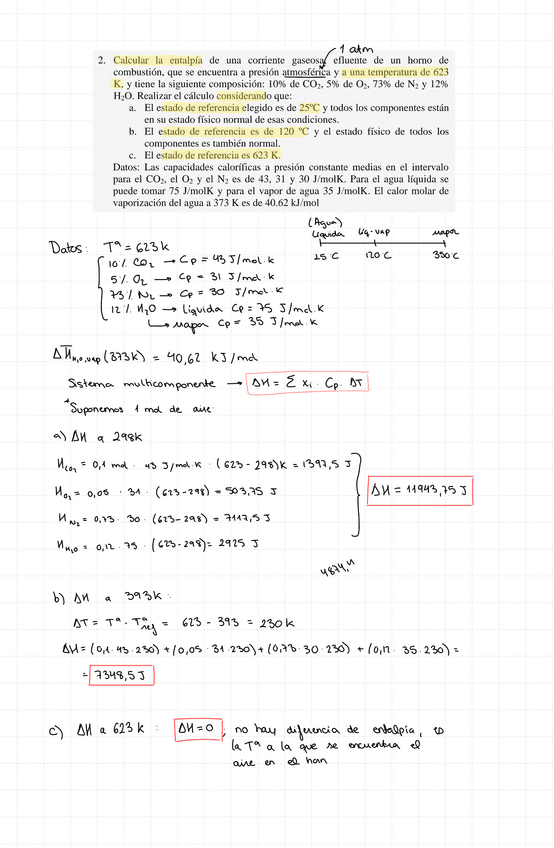 1 atm
2. Calcular la entalpía de una corriente gaseosa, efluente de un horno de
combustión, que se encuentra a presión atmosférica y a una temperatura de 623
K, y tiene la siguiente composición: 10% de CO₂, 5% de O₂, 73% de N₂ y 12%
H₂O. Realizar el cálculo considerando que:
a. El estado de referencia elegido es de 25ºC y todos los componentes están
en su estado físico normal de esas condiciones.
b. El estado de referencia es de 120 ºC y el estado físico de todos los
componentes es también normal.
c. El estado de referencia es 623 K.
Datos: Las capacidades caloríficas a presión constante medias en el intervalo
para el CO₂, el O₂ y el N₂ es de 43, 31 y 30 J/molK. Para el agua líquida se
puede tomar 75 J/molK y para el vapor de agua 35 J/molK. El calor molar de
vaporización del agua a 373 K es de 40.62 kJ/mol
(Agua)
líquida liq-vap vapor
25ºC 120ºC 350ºC
Datos: Tª = 623 k
10% CO₂ → Cp = 43 J/mol.k
5% O₂ → Cp = 31 J/mol.k
73% N₂ → Cp = 30 J/mol.k
12% H₂O → líquida Cp = 75 J/mol.k
↳ vapor Cp = 35 J/mol.k
ΔH̅ H₂O,vap (373k) = 40,62 kJ/mol
Sistema multicomponente → ΔH = Σ xi · Cp · ΔT
*Suponemos 1 mol de aire
a) ΔH a 298k
H CO₂ = 0,1 mol · 43 J/mol.k · (623-298)k = 1397,5 J
H O₂ = 0,05 · 31 · (623-298) = 503,75 J
ΔH = 11943,75 J
H N₂ = 0,73 · 30 · (623-298) = 7117,5 J
H H₂O = 0,12 · 75 · (623-298) = 2925 J
b) ΔH a 393k:
ΔT = Tª - Tª ref = 623 - 393 = 230 k
ΔH = (0,1 · 43 · 230) + (0,05 · 31 · 230) + (0,73 · 30 · 230) + (0,12 · 35 · 230) =
= 7348,5 J
c) ΔH a 623 k: ΔH = 0, no hay diferencia de entalpía, es
la Tª a la que se encuentra el
aire en el